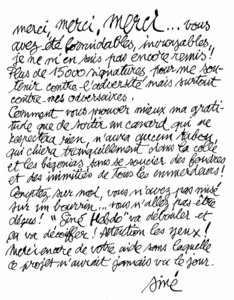 merci, merci, merci... vous
avez été formidables, incroyables,
je ne m'en suis pas encore remis!
Plus de 15000 signatures pour me sou-
tenir contre l'adversité mais surtout
contre mes adversaires.
Comment vous prouver mieux ma grati-
tude que de sortir un canard qui ne
respectera rien, n'aura aucun tabou,
qui chiera tranquillement dans la colle
et les bégonias sans se soucier des foudres
et des inimitiés de tous les emmerdeurs!
Comptez sur moi, vous n'avez pas misé
sur un bourrin... vous n'allez pas être
déçus! "Siné Hebdo" va débouler et
ça va décoiffer! Attention les yeux!
Merci encore de votre aide sans laquelle
ce projet n'aurait jamais vu le jour.
Siné